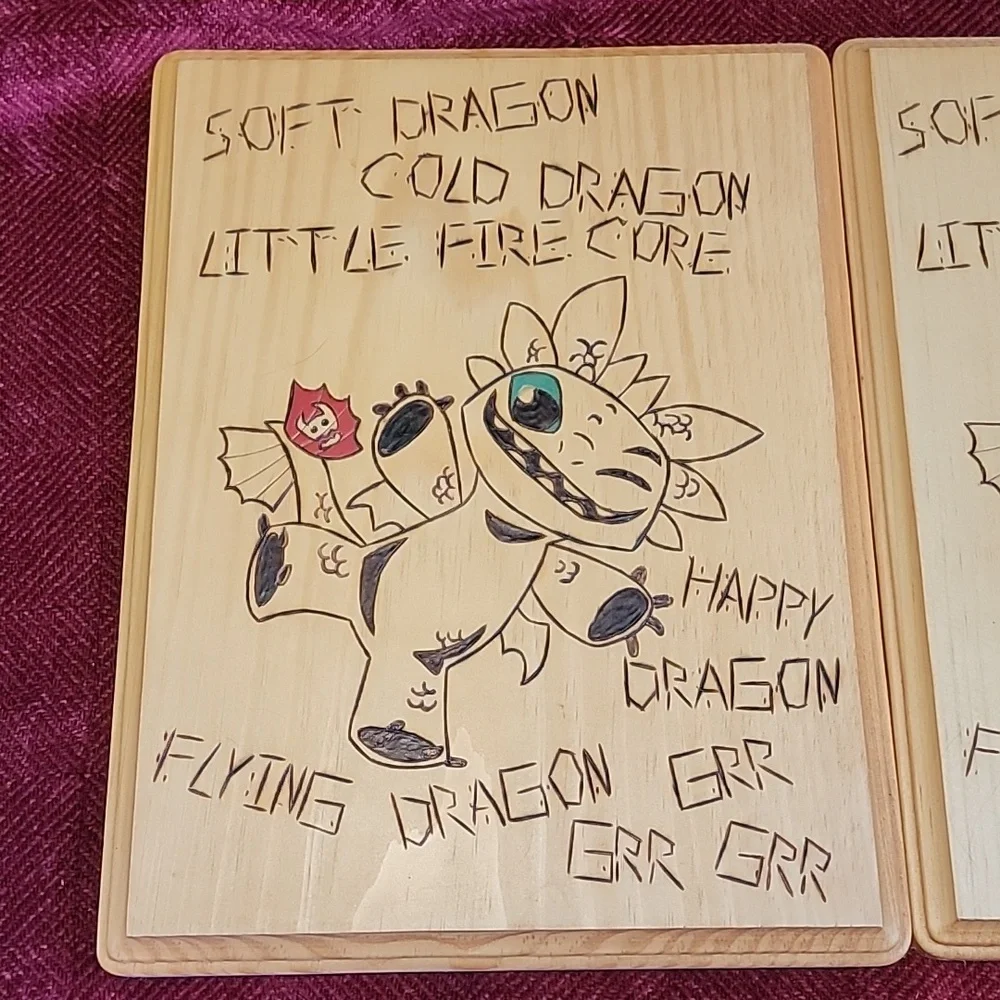 SOFT DRAGON
COLD DRAGON
LITTLE FIRE CORE
HAPPY
DRAGON
FLYING DRAGON GRR
GRR GRR
SOF
LIT
F